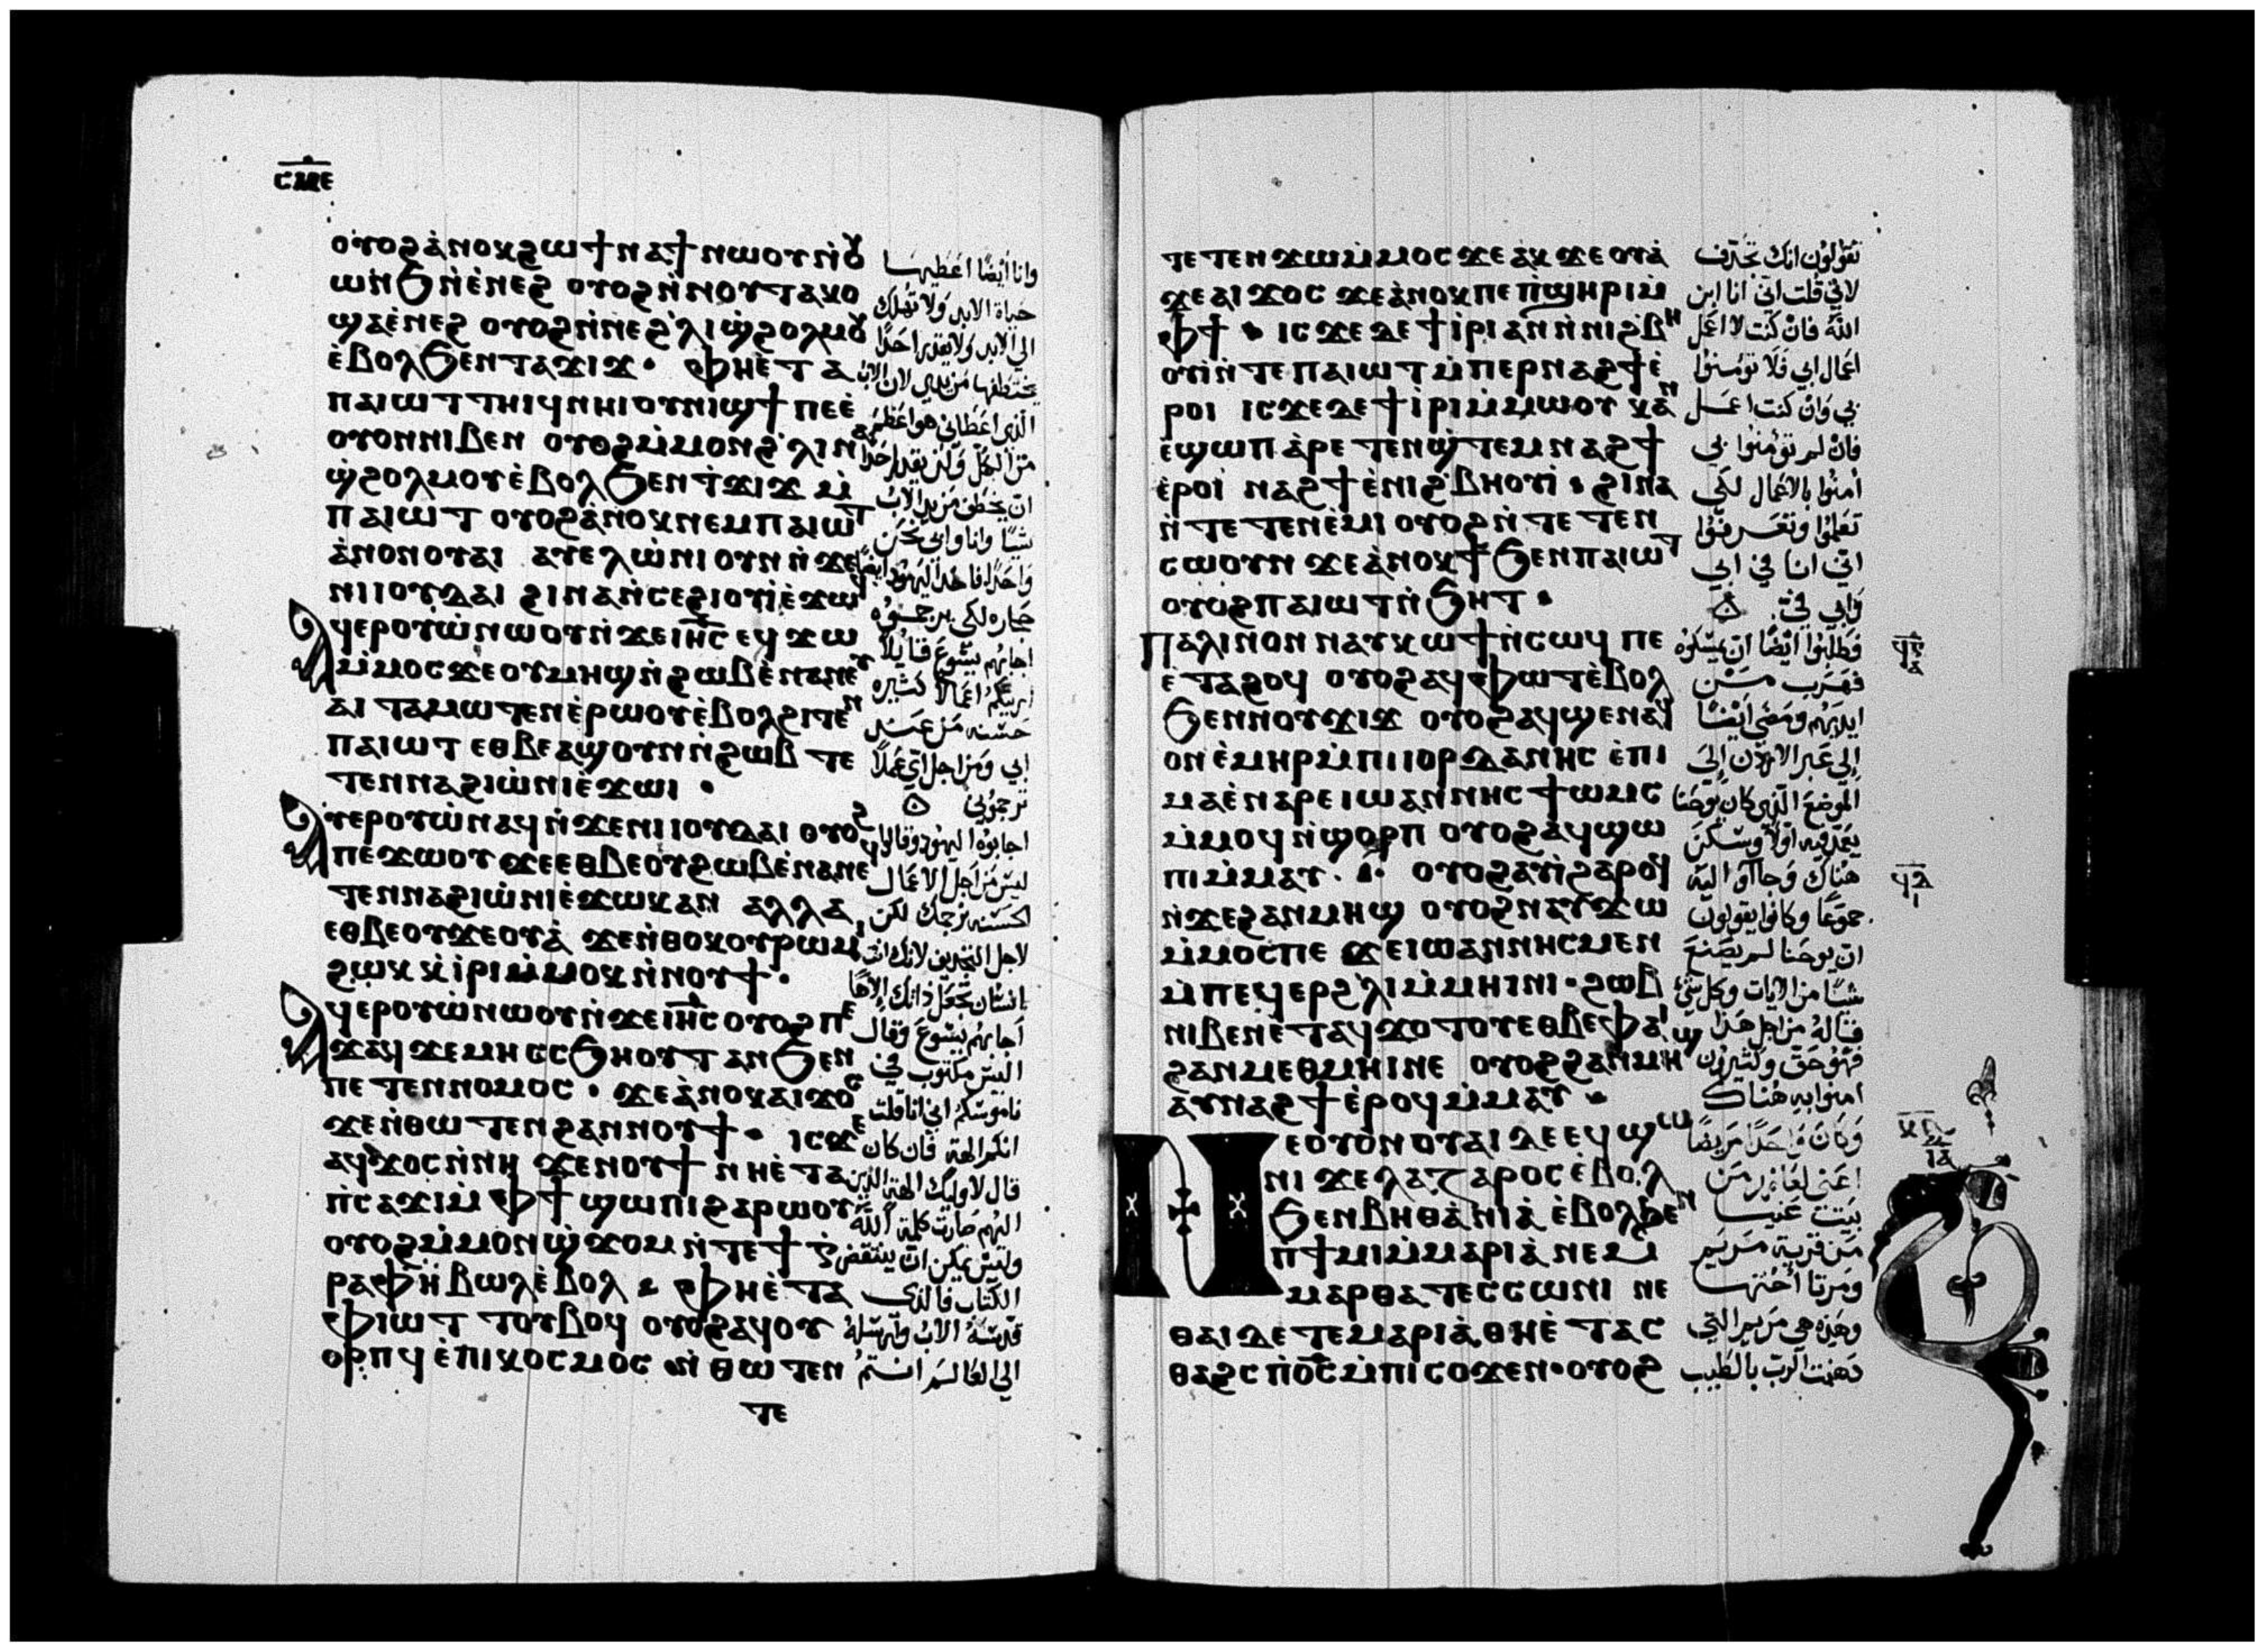 ⲥⲙⲉ
ⲟⲩⲟϩ ⲁ̀ⲛⲟⲕ ϩⲱ ϯⲛⲁϯ ⲛⲱⲟⲩ ⲛ̀ⲟⲩ
ⲱⲛϧ ⲛ̀ⲉ̀ⲛⲉϩ ⲟⲩⲟϩ ⲛ̀ⲛⲟⲩⲧⲁⲕⲟ
ϣⲁ ⲉ̀ⲛⲉϩ ⲟⲩⲟϩ ⲛ̀ⲛⲉ ϩ̀ⲗⲓ ϣ̀ϩⲟⲗⲙⲟⲩ
ⲉ̀ⲃⲟⲗϧⲉⲛ ⲧⲁϫⲓϫ · ⲫⲏⲉ̀ⲧⲁ
ⲡⲁⲓⲱⲧ ⲧⲏⲓϥ ⲛⲏⲓ ⲟⲩⲛⲓϣϯ ⲡⲉ ⲉ̀
ⲟⲩⲟⲛ ⲛⲓⲃⲉⲛ ⲟⲩⲟϩ ⲙ̀ⲙⲟⲛ ϩ̀ⲗⲓ ⲛⲁ
ϣ̀ϩⲟⲗⲙⲟⲩ ⲉ̀ⲃⲟⲗϧⲉⲛ ⲧ̀ϫⲓϫ ⲙ̀
ⲡⲁⲓⲱⲧ ⲟⲩⲟϩ ⲁ̀ⲛⲟⲕ ⲛⲉⲙ ⲡⲁⲓⲱⲧ
ⲁ̀ⲛⲟⲛ ⲟⲩⲁⲓ ⲁⲩⲉⲗ ⲱ̀ⲛⲓ ⲟⲩⲛ ⲛ̀ϫⲉ
ⲛⲓⲓⲟⲩⲇⲁⲓ ϩⲓⲛⲁ ⲛ̀ⲥⲉϩⲓⲟⲩⲓ̀ ⲉ̀ϫⲱϥ
ⲁϥⲉⲣⲟⲩⲱ̀ ⲛⲱⲟⲩ ⲛ̀ϫⲉ ⲓⲏ̅ⲥ̅ ⲉϥϫⲱ
ⲙ̀ⲙⲟⲥ ϫⲉ ⲟⲩⲙⲏϣ ⲛ̀ϩⲱⲃ ⲉ̀ⲛⲁⲛⲉⲩ
ⲁⲓⲧⲁⲙⲱⲧⲉⲛ ⲉ̀ⲣⲱⲟⲩ ⲉ̀ⲃⲟⲗϩⲓⲧⲉⲛ
ⲡⲁⲓⲱⲧ ⲉⲑⲃⲉ ⲁϣ ⲟⲩⲛ ⲛ̀ϩⲱⲃ ⲧⲉ
ⲧⲉⲛⲛⲁϩⲓⲱ̀ⲛⲓ ⲉ̀ϫⲱⲓ ·
ⲁⲩⲉⲣⲟⲩⲱ̀ ⲛⲁϥ ⲛ̀ϫⲉ ⲛⲓⲓⲟⲩⲇⲁⲓ ⲟⲩⲟϩ
ⲡⲉϫⲱⲟⲩ ϫⲉ ⲉⲑⲃⲉ ⲟⲩϩⲱⲃ ⲉ̀ⲛⲁⲛⲉϥ
ⲧⲉⲛⲛⲁϩⲓⲱ̀ⲛⲓ ⲉ̀ϫⲱⲕ ⲁⲛ ⲁⲗⲗⲁ
ⲉⲑⲃⲉ ⲟⲩϫⲉⲟⲩⲁ̀ ϫⲉ ⲛ̀ⲑⲟⲕ ⲟⲩⲣⲱⲙⲓ
ϩⲱⲕ ⲕ̀ⲓ̀ⲣⲓ ⲙ̀ⲙⲟⲕ ⲛ̀ⲛⲟⲩϯ ·
ⲁϥⲉⲣⲟⲩⲱ̀ ⲛⲱⲟⲩ ⲛ̀ϫⲉ ⲓⲏ̅ⲥ̅ ⲟⲩⲟϩ ⲡⲉ
ϫⲁϥ ϫⲉ ⲙⲏ ⲥⲥϧⲏⲟⲩⲧ ⲁⲛ ϧⲉⲛ
ⲡⲉⲧⲉⲛⲛⲟⲙⲟⲥ · ϫⲉ ⲁ̀ⲛⲟⲕ ⲁⲓϫⲟⲥ
ϫⲉ ⲛ̀ⲑⲱⲧⲉⲛ ϩⲁⲛⲛⲟⲩϯ · ⲓⲥϫⲉ
ⲁϥϫⲟⲥ ⲛ̀ⲛⲏ ϫⲉ ⲛⲟⲩϯ ⲛⲏⲉ̀ⲧⲁ
ⲡ̀ⲥⲁϫⲓ ⲙ̀ⲫϯ ϣⲱⲡⲓ ϩⲁⲣⲱⲟⲩ
ⲟⲩⲟϩ ⲙ̀ⲙⲟⲛ ϣ̀ϫⲟⲙ ⲛ̀ⲧⲉ ϯⲅ̀
ⲣⲁⲫⲏ ⲃⲱⲗ ⲉ̀ⲃⲟⲗ · ⲫⲏⲉ̀ⲧⲁ
ⲫⲓⲱⲧ ⲧⲟⲩⲃⲟϥ ⲟⲩⲟϩ ⲁϥⲟⲩ
ⲟⲣⲡϥ ⲉ̀ⲡⲓⲕⲟⲥⲙⲟⲥ ⲛ̀ⲑⲱⲧⲉⲛ
ⲧⲉ
وانا ايضًا اعطيها
حياة الابد ولا تهلك
الي الابد ولا يقدر احدًا
يختطفها من يدي لان الاب
الذي اعطاني هو اعظم
من الكل ولن يقدر احدًا
ان يخطف من يد الاب
شيئًا وانا وابي نحن
واحدًا فاخذ اليهود ايضًا
حجاره لكي يرجموه
اجابهم يسوع قايلًا
اريتكم اعمالًا كثيره
حسنه من عند
ابي ومن اجل اي عملًا
ترجموني
اجابوه اليهود وقالوا
ليس من اجل الاعمال
الحسنه نرجمك لكن
لاجل التجديف لانك انت
انسان تجعل ذاتك الاهًا
اجابهم يسوع وقال
اليس مكتوب في
ناموسكم اني انا قلت
انكم الهة فان كان
قال لاوليك الهة الذين
اليهم صارت كلمة الله
وليس يمكن ان ينتقض
الكتاب فالذي
قدسه الاب وارسله
الي العالم انتم
ⲧⲉⲧⲉⲛϫⲱ ⲙ̀ⲙⲟⲥ ϫⲉ ⲁ̀ⲕϫⲉⲟⲩⲁ̀
ϫⲉ ⲁⲓϫⲟⲥ ϫⲉ ⲁ̀ⲛⲟⲕ ⲡⲉ ⲡ̀ϣⲏⲣⲓ ⲙ̀
ⲫϯ · ⲓⲥϫⲉ ⲇⲉ ϯⲓ̀ⲣⲓ ⲁⲛ ⲛ̀ⲛⲓϩ̀ⲃⲏ
ⲟⲩⲓ̀ ⲛ̀ⲧⲉ ⲡⲁⲓⲱⲧ ⲙ̀ⲡⲉⲣⲛⲁϩϯ ⲉ̀
ⲣⲟⲓ ⲓⲥϫⲉ ⲇⲉ ϯⲓ̀ⲣⲓ ⲙ̀ⲙⲱⲟⲩ ⲕⲁⲛ
ⲉ̀ϣⲱⲡ ⲁ̀ⲣⲉⲧⲉⲛϣ̀ⲧⲉⲙⲛⲁϩϯ
ⲉ̀ⲣⲟⲓ ⲛⲁϩϯ ⲉ̀ⲛⲓϩ̀ⲃⲏⲟⲩⲓ̀ · ϩⲓⲛⲁ
ⲛ̀ⲧⲉⲧⲉⲛⲉ̀ⲙⲓ ⲟⲩⲟϩ ⲛ̀ⲧⲉⲧⲉⲛ
ⲥⲱⲟⲩⲛ ϫⲉ ⲁ̀ⲛⲟⲕ ϯϧⲉⲛ ⲡⲁⲓⲱⲧ
ⲟⲩⲟϩ ⲡⲁⲓⲱⲧ ⲛ̀ϧⲏⲧ ·
ⲡⲁⲗⲓⲛ ⲟⲛ ⲛⲁⲩⲕⲱϯ ⲛ̀ⲥⲱϥ ⲡⲉ
ⲉ̀ⲧⲁϩⲟϥ ⲟⲩⲟϩ ⲁϥⲫⲱⲧ ⲉ̀ⲃⲟⲗ
ϧⲉⲛ ⲛⲟⲩϫⲓϫ ⲟⲩⲟϩ ⲁϥϣⲉⲛⲁϥ
ⲟⲛ ⲉ̀ⲙⲏⲣ ⲙ̀ⲡⲓⲓⲟⲣⲇⲁⲛⲏⲥ ⲉ̀ⲡⲓ
ⲙⲁ ⲉ̀ⲛⲁⲣⲉ ⲓⲱⲁⲛⲛⲏⲥ ϯⲱⲙⲥ
ⲙ̀ⲙⲟϥ ⲛ̀ϣⲟⲣⲡ ⲟⲩⲟϩ ⲁϥϣⲱ
ⲡⲓ ⲙ̀ⲙⲁⲩ · ⲟⲩⲟϩ ⲁⲩⲓ̀ ϩⲁⲣⲟϥ
ⲛ̀ϫⲉ ϩⲁⲛⲙⲏϣ ⲟⲩⲟϩ ⲛⲁⲩϫⲱ
ⲙ̀ⲙⲟⲥ ⲡⲉ ϫⲉ ⲓⲱⲁⲛⲛⲏⲥ ⲙⲉⲛ
ⲙ̀ⲡⲉϥⲉⲣ ϩ̀ⲗⲓ ⲙ̀ⲙⲏⲓⲛⲓ · ϩⲱⲃ
ⲛⲓⲃⲉⲛ ⲉ̀ⲧⲁϥϫⲟⲧⲟⲩ ⲉⲑⲃⲉ ⲫⲁⲓ
ϩⲁⲛⲙⲉⲑⲙⲏⲓ ⲛⲉ ⲟⲩⲟϩ ϩⲁⲛⲙⲏϣ
ⲁⲩⲛⲁϩϯ ⲉ̀ⲣⲟϥ ⲙ̀ⲙⲁⲩ
ⲛⲉ ⲟⲩⲟ̀ⲛ ⲟⲩⲁⲓ ⲇⲉ ⲉϥϣⲱ
ⲛⲓ ϫⲉ ⲗⲁⲍⲁⲣⲟⲥ ⲉ̀ⲃⲟⲗ
ϧⲉⲛ ⲃⲏⲑⲁ̀ⲛⲓⲁ̀ ⲉ̀ⲃⲟⲗϧⲉⲛ
ⲡ̀ϯⲙⲓ ⲙ̀ⲙⲁⲣⲓⲁ̀ ⲛⲉⲙ
ⲙⲁⲣⲑⲁ ⲧⲉⲥⲥⲱⲛⲓ ⲛⲉ
ⲑⲁⲓ ⲇⲉ ⲧⲉ ⲙⲁⲣⲓⲁ̀ ⲑⲏⲉ̀ⲧⲁⲥ
ⲑⲁϩⲥ ⲡ̀ⲟ̅ⲥ̅ ⲙ̀ⲡⲓⲥⲟϫⲉⲛ · ⲟⲩⲟϩ
تقولون انك تجدف
لاني قلت اني انا ابن
الله فان كنت لا اعمل
اعمال ابي فلا تومنوا
بي وان كنت اعمل
فان لم تومنوا بي
امنوا بالاعمال لكي
تعلموا وتعرفوا
اني انا في ابي
وابي فيّ
فطلبوا ايضًا ان يمسكوه
فهرب من
ايديهم ومضي ايضًا
الي عبر الاردن الي
الموضع الذي كان يوحنا
يعمد فيه اولًا وسكن
هناك وجاآوا اليه
جموعًا وكانوا يقولون
ان يوحنا لم يصنع
شيئًا من الايات وكل شي
قاله من اجل هذا
فهو حق وكثيرون
امنوا به هناك
وكان واحدًا مريضًا
اعني لعازر من
بيت عنيا
من قرية مريم
ومرتا اختها
وهذه هي مريم التي
دهنت الرب بالطيب